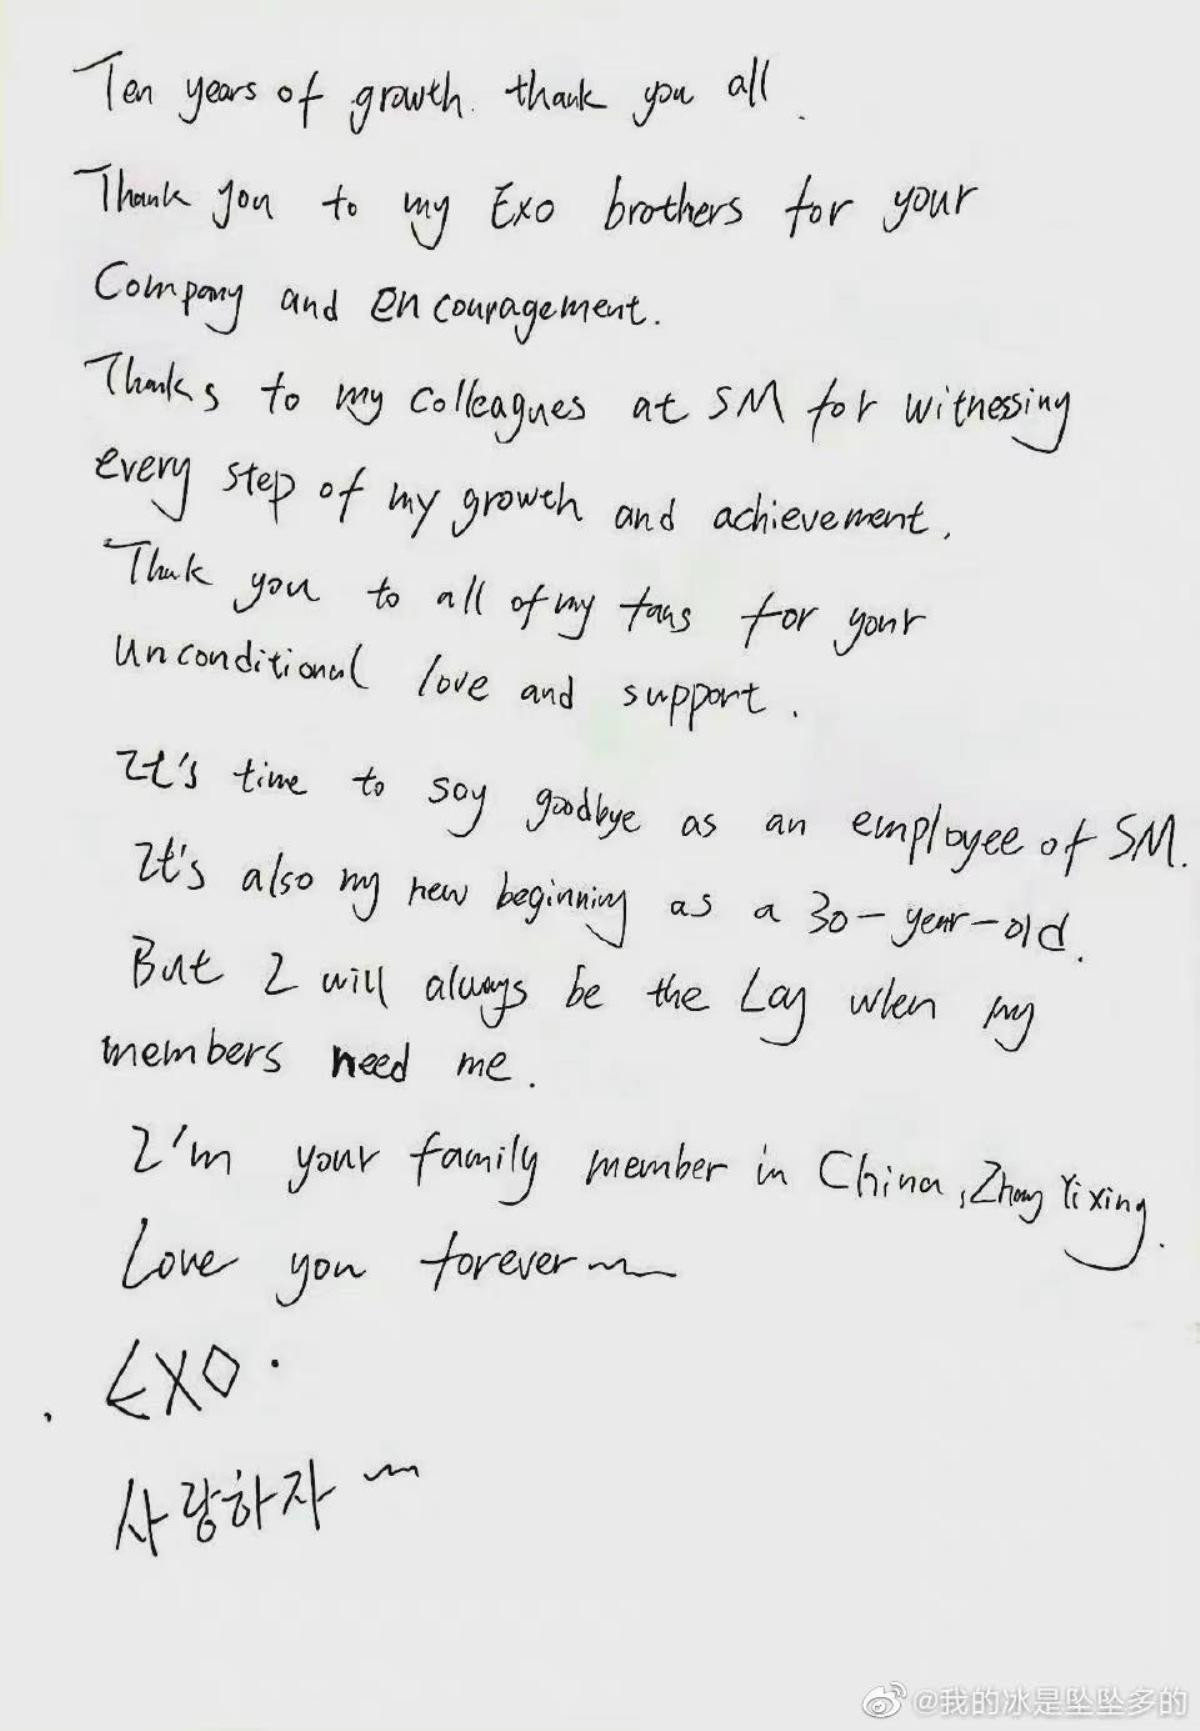 Ten years of growth. thank you all.
Thank you to my Exo brothers for your
Company and encouragement.
Thanks to my colleagues at SM for witnessing
every step of my growth and achievement.
Thank you to all of my fans for your
unconditional love and support.
It's time to say goodbye as an employee of SM.
It's also my new beginning as a 30-year-old.
But I will always be the Lay when my
members need me.
I'm your family member in China, Zhang Yixing.
Love you forever~
EXO.
사랑하자~
@我的冰是坠坠多的